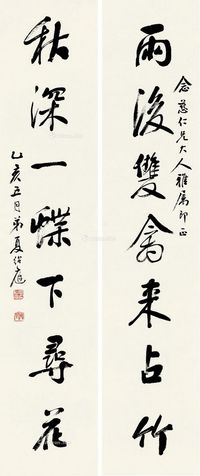 雨後雙禽来占竹
念慈仁兄大人雅屬即正
秋深一蝶下尋花
乙亥五月弟夏